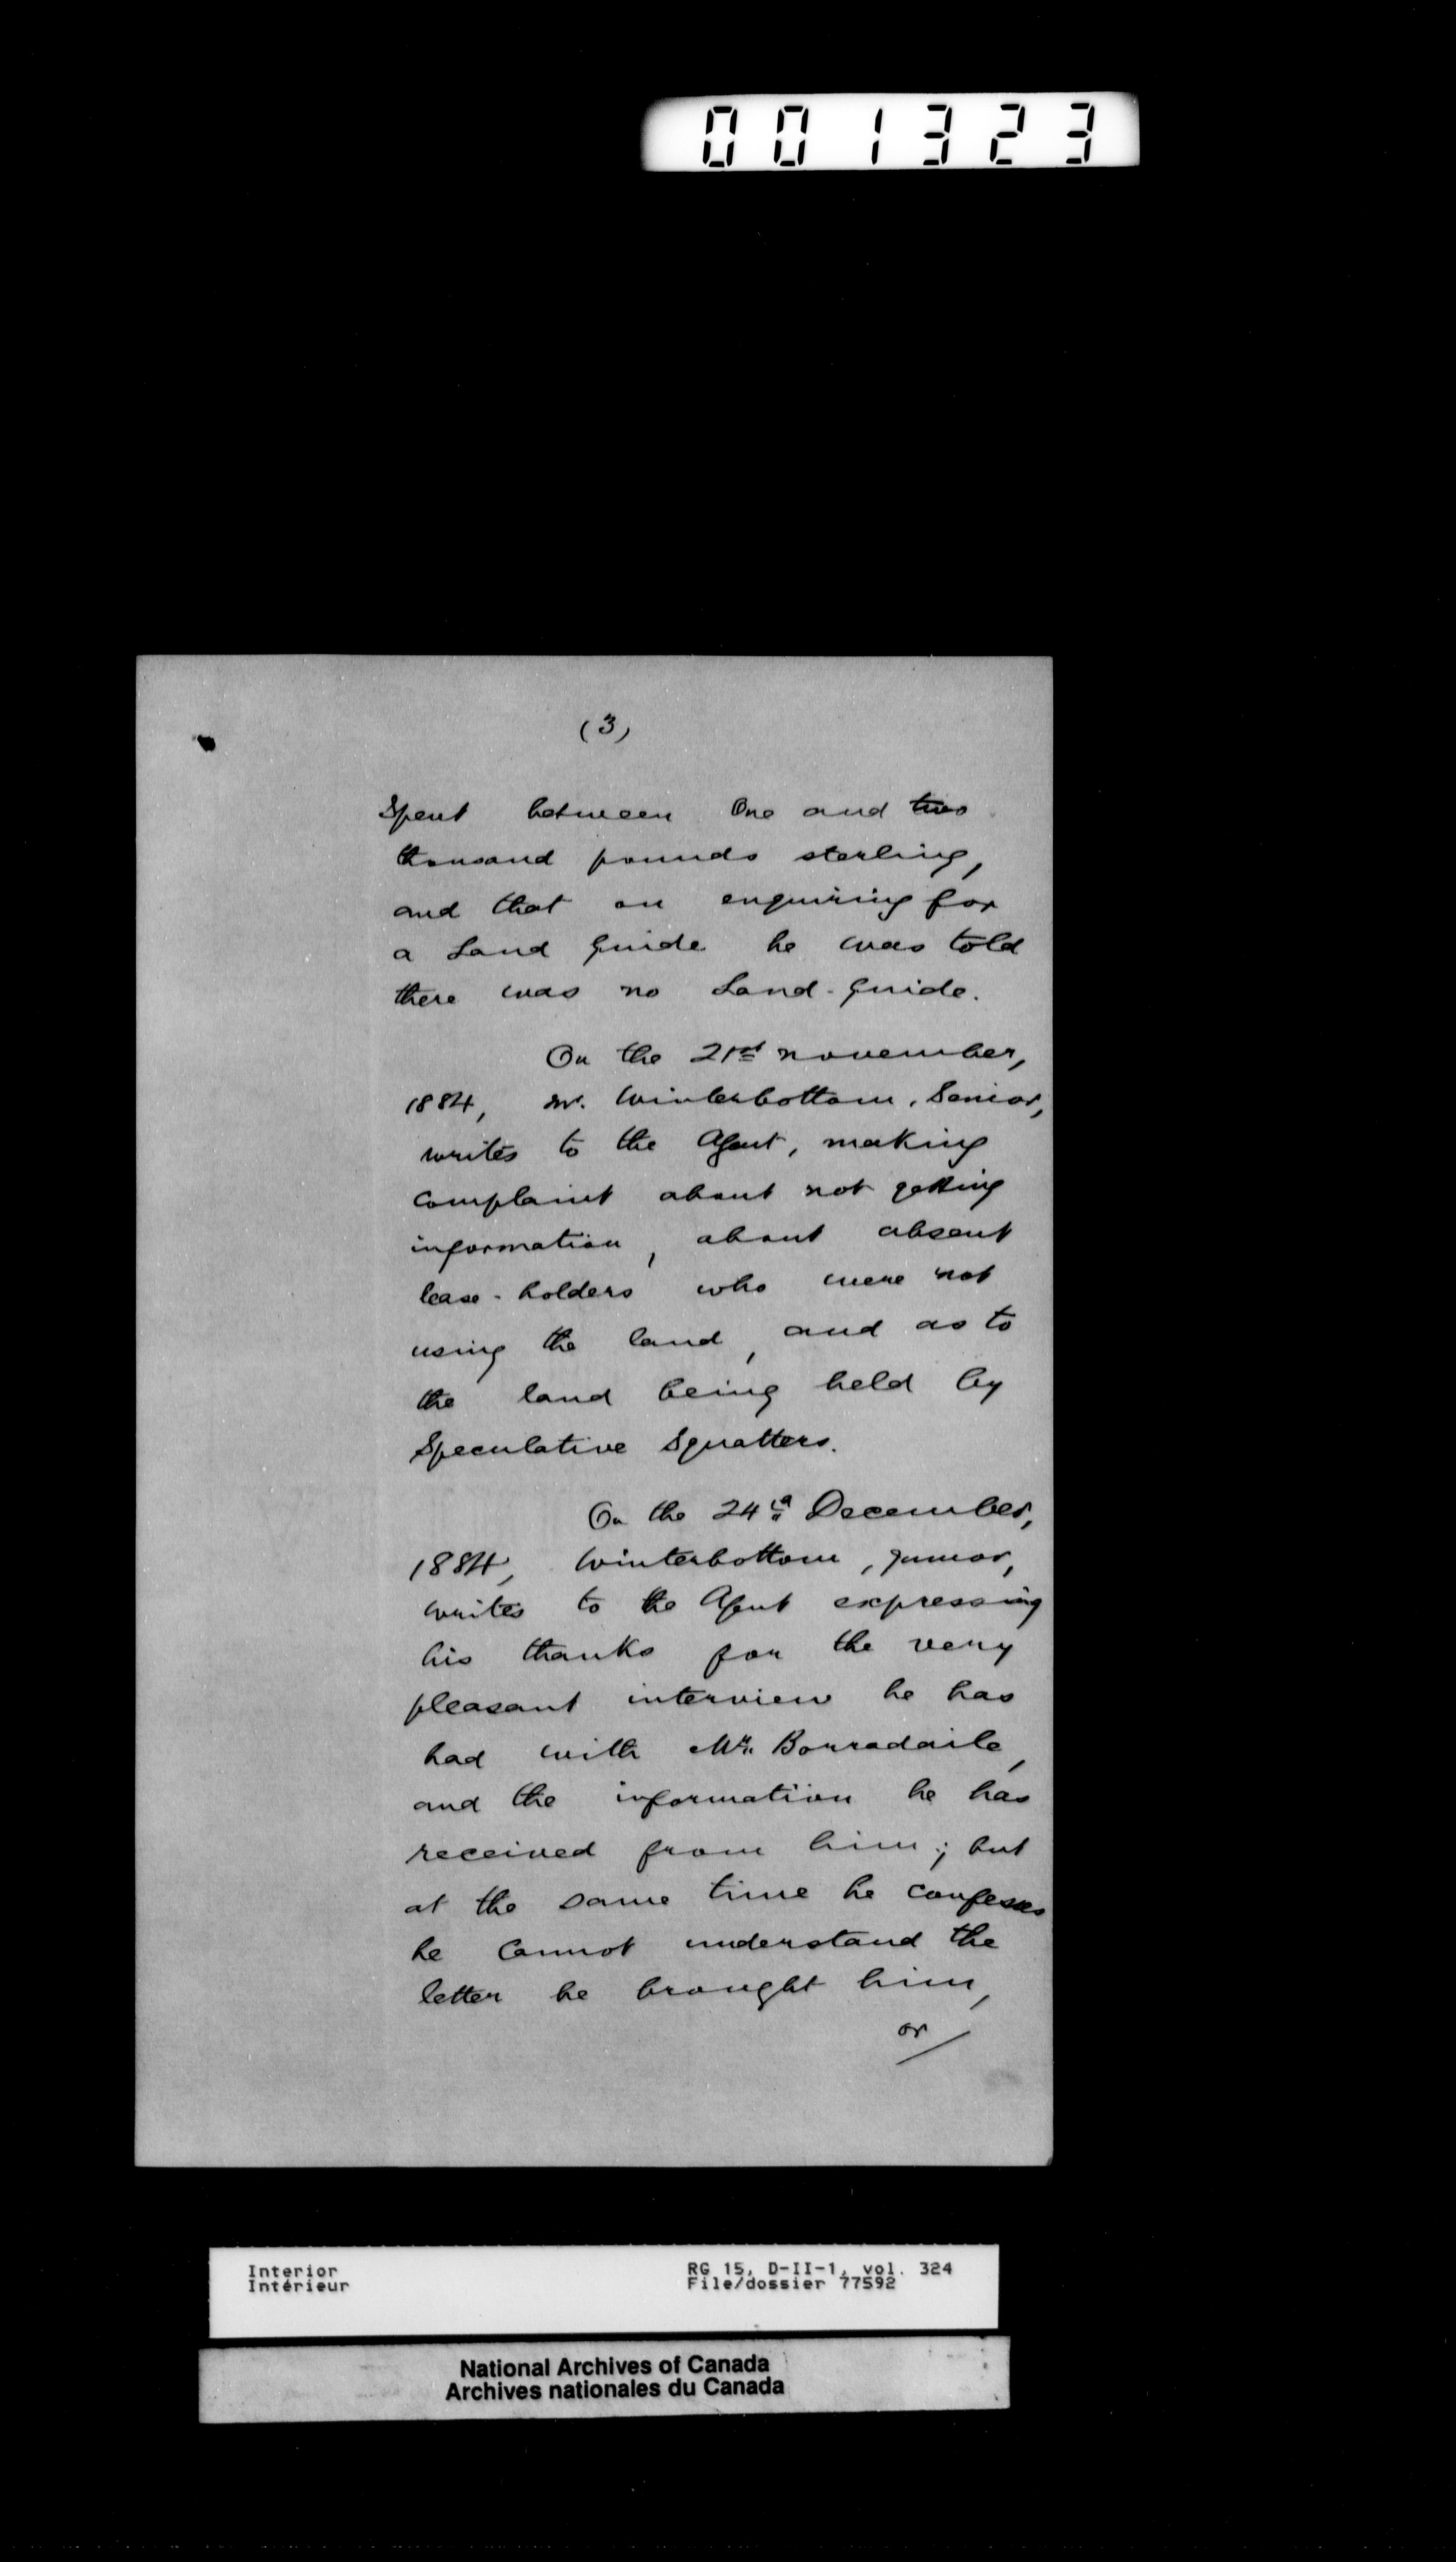 001323
(3)
Spent between One and two
thousand pounds sterling,
and that on enquiring for
a Land Guide he was told
there was no Land-Guide.
On the 21st November,
1884, Mr. Winterbottom, Senior,
writes to the Agent, making
complaint about not getting
information, about absent
lease-holders who were not
using the land, and as to
the land being held by
Speculative Squatters.
On the 24th December,
1884, Winterbottom, junior,
writes to the Agent expressing
his thanks for the very
pleasant interview he has
had with Mr. Borradaile,
and the information he has
received from him; but
at the same time he confesses
he cannot understand the
letter he brought him,
or
Interior
Intérieur
RG 15, D-II-1, vol. 324
File/dossier 77592
National Archives of Canada
Archives nationales du Canada